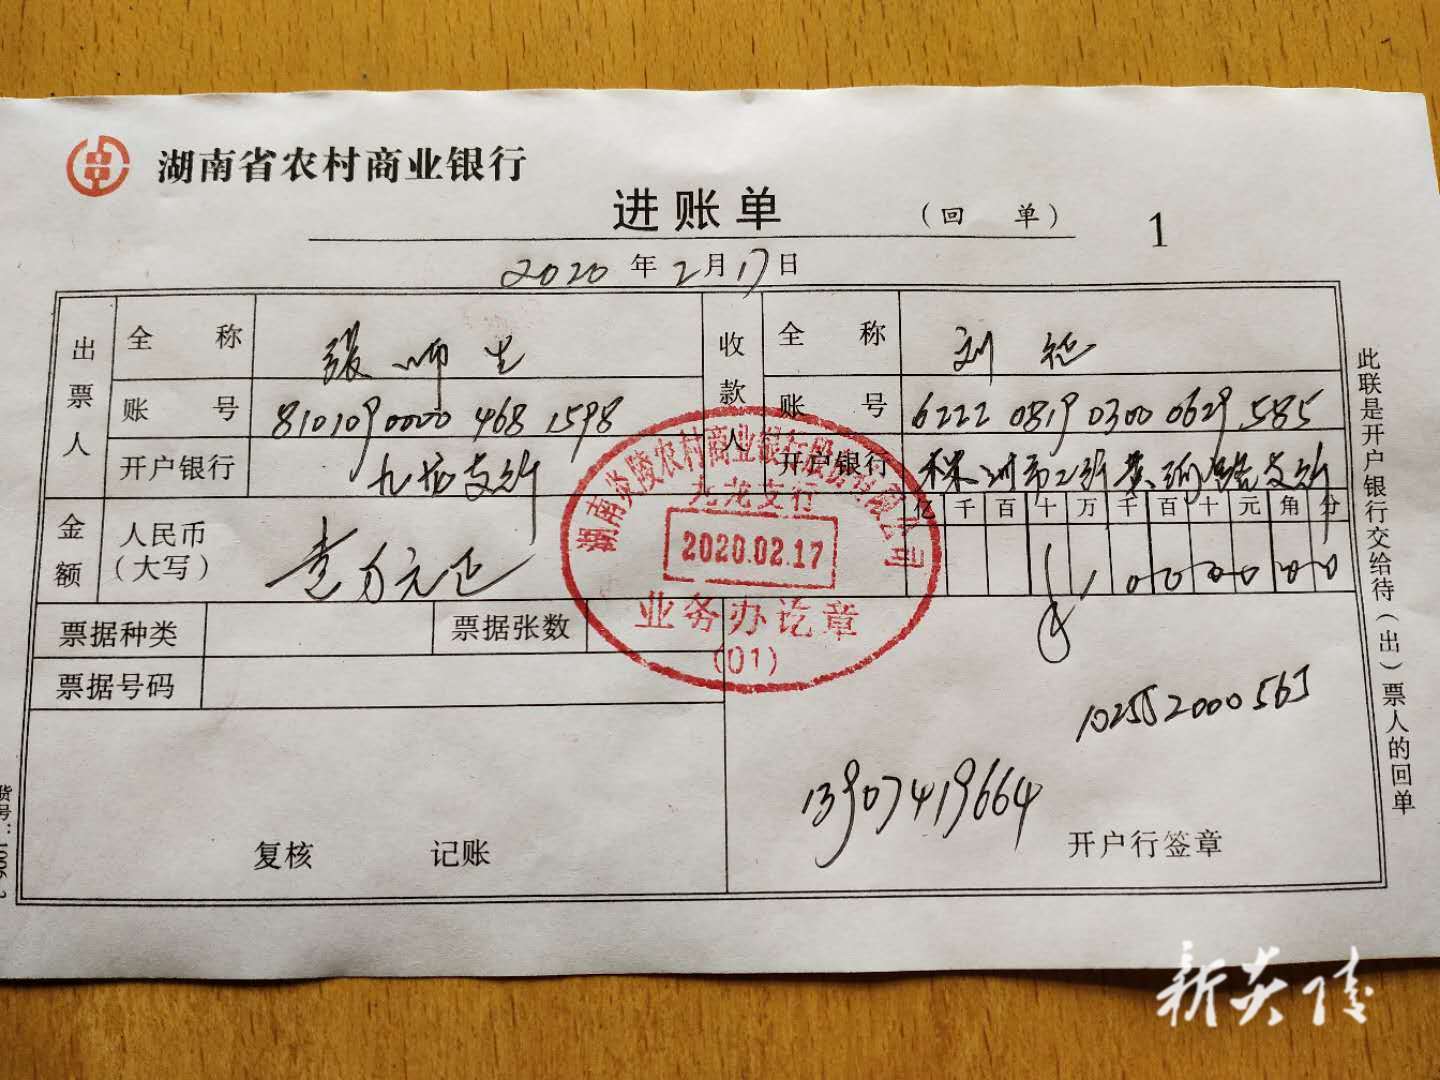 湖南省农村商业银行
进账单 （回 单） 1
2020 年 2 月 17 日
出票人 全称 张师生 收款人 全称 刘
账号 81010900004681598 账号 6222 0819 0300 0629 585
开户银行 九龙支行 开户银行 株洲市工行 支行
金额 人民币（大写） 壹万元正 亿 千 百 十 万 千 百 十 元 角 分
¥ 1 0 0 0 0 0 0
票据种类 票据张数
票据号码
湖南炎陵农村商业银行股份有限公司
九龙支行
2020.02.17
业务办讫章
（01）
102552000565
13907419664
复核 记账 开户行签章
此联是开户银行交给待（出）票人的回单
货号：1006-2
新炎陵